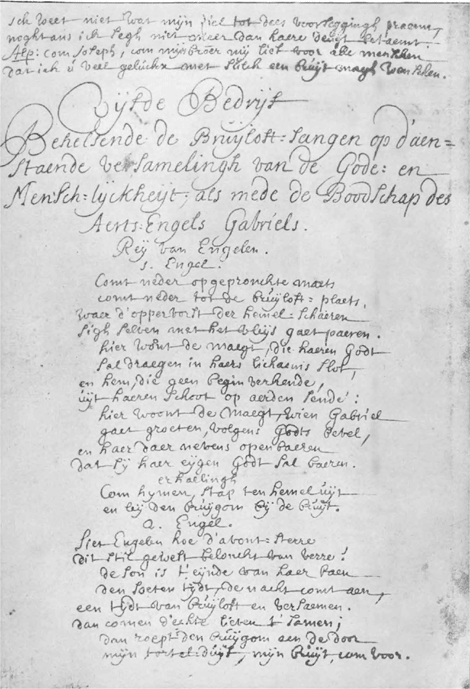 Ick weet niet wat mijn siel tot dees voorseggingh
noghtans ick segh niet meer dan haere deugt betaemt.
Alp: Com Joseph, com mijn broer mij lief voor alle menschen
dat ick u veel geluckx met sulck een bruijt magh wenschen.
Vijfde Bedrijf
Behelsende de Bruijloft=sangen op d'aen-
staende versamelingh van de Gode: en
Mensch=lyckheijt, als mede de Boodschap des
Aerts=Engels Gabriels.
Reij van Engelen.
1. Engel.
Comt neder opgepronckte maets
comt neder tot de bruijloft=plaets,
waer d'oppervorst der hemel=schaeren
sigh selven met het vlijs gaet paeren.
hier wont de maegt, die haeren Godt
sal draegen in haers lichaems slot,
en hem, die geen begin verkende,
uijt haeren schoot op aerden sende:
hier woont de Maegt, wien Gabriel
gaet groeten, volgens Godts bevel,
en haer daer nevens openbaeren
dat sij haer eijgen Godt sal baeren.
erhaelingh
Com hymen, stap ten hemel uijt
en leij den bruijgom bij de bruijt.
2. Engel.
Siet Engelen hoe d'avont=sterre
dit stil gewelf beloncht van verre!
de son is t'eijnde van haer baen
den soeten tijdt, de nacht comt aen,
een tijdt van bruijloft en versaemen.
dan comen d'echte lieven t'samen;
dan roept den bruijgom aen de door
mijn tortel=duijf, mijn bruijt, com voor.